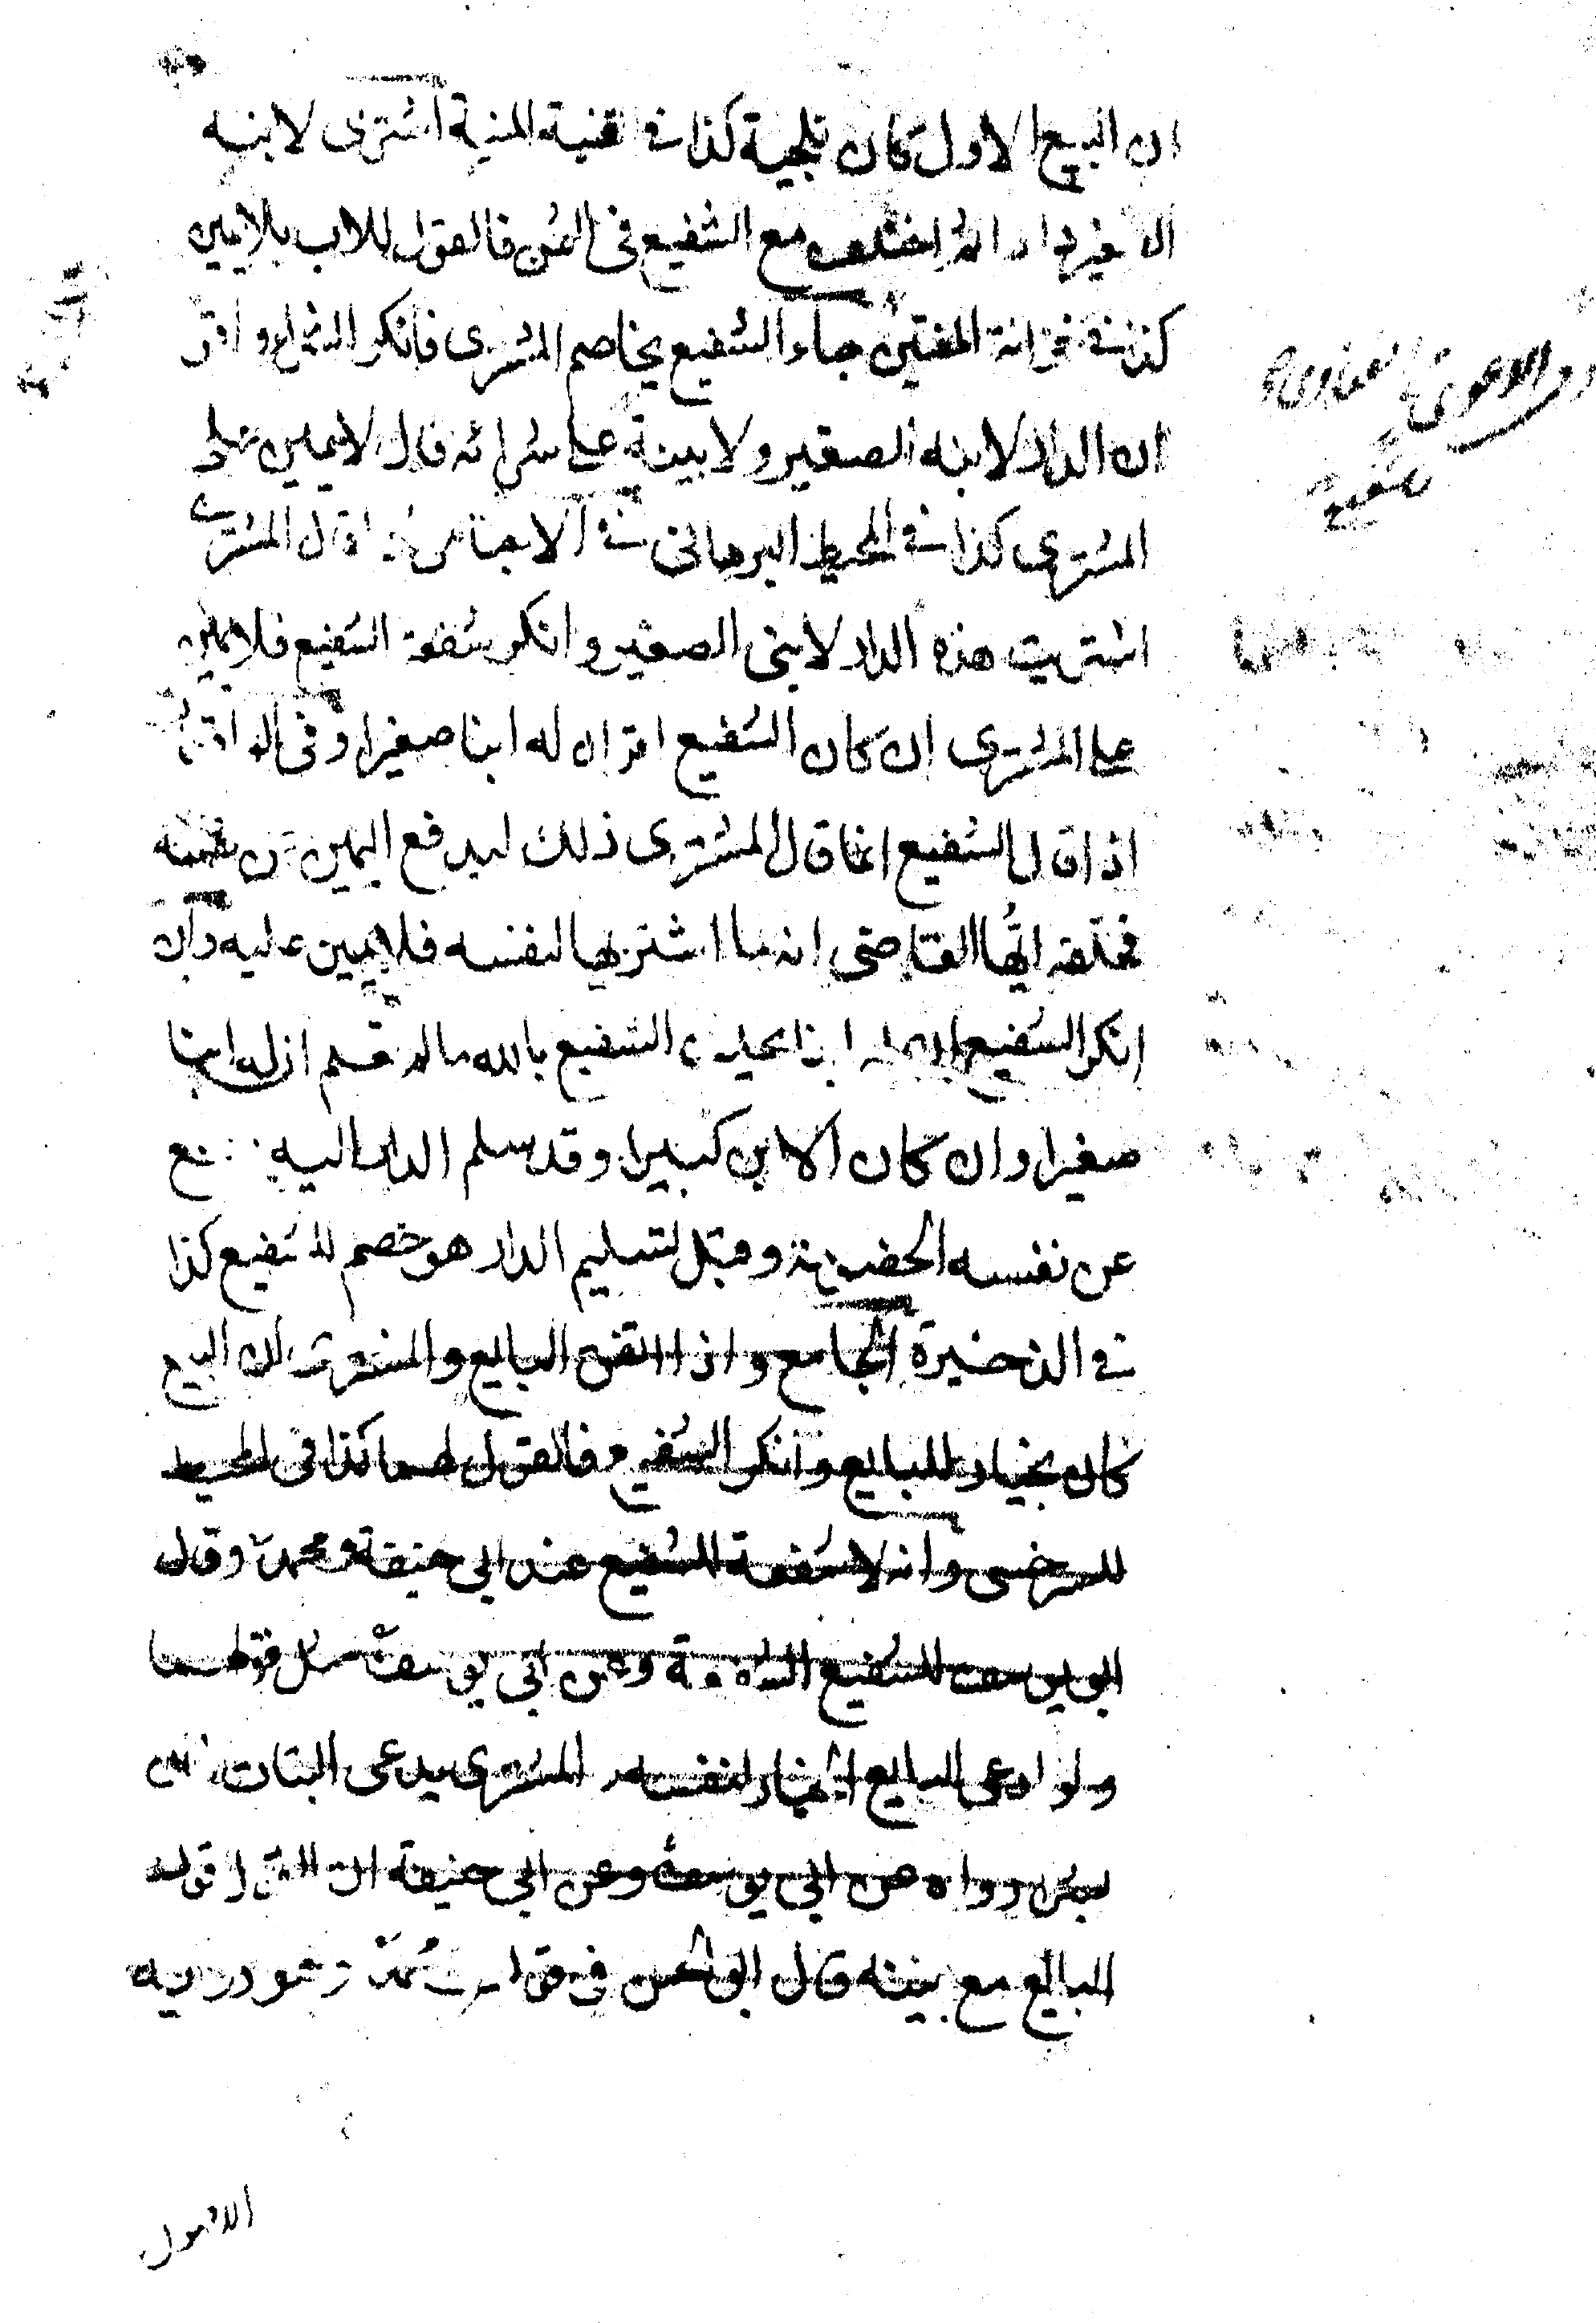 ان البيع الاول كان تلجية كذا في قنية المنية اشترى لابنه
الصغير دارا ثم اختلف مع الشفيع في الثمن فالقول للاب بلا يمين
كذا في خزانة المفتين جاء الشفيع يخاصم المشترى فانكر الشراء واقر
ان الدار لابنه الصغير ولا بينة على شرائه قال لا يمين على
المشترى كذا في المحيط البرهانى في الاجناس اذا قال المشترى
اشتريت هذه الدار لابنى الصغير وانكر شفعة الشفيع فلا يمين
على المشترى ان كان الشفيع اقر ان له ابنا صغيرا وفى
اذا قال الشفيع انما قال المشترى ذلك ليدفع اليمين عن نفسه
فحلفه ايها القاضى انه ما اشتريها لنفسه فلا يمين عليه وان
انكر الشفيع ابنا يحلف الشفيع بالله ما له ابنا
صغيرا وان كان الابن كبيرا وقد سلم الدار اليه دفع
عن نفسه الخصومة وقبل تسليم الدار هو خصم للشفيع كذا
في الذخيرة الجامع واذا اتفق البايع والمشترى ان البيع
كان بخيار للبايع وانكر الشفيع فالقول لهما كذا فى المحيط
للسرخسى وانه لا شفعة للشفيع عند ابي حنيفة ومحمد وقال
ابو يوسف للشفيع الشفعة وعن ابي يوسف مثل قولهما
ولو ادعى البايع الخيار لنفسه والمشترى يدعى البتات
رواه عن ابي يوسف وعن ابي حنيفة ان القول قول
البايع مع بينته قال ابو الحسن في قول محمد